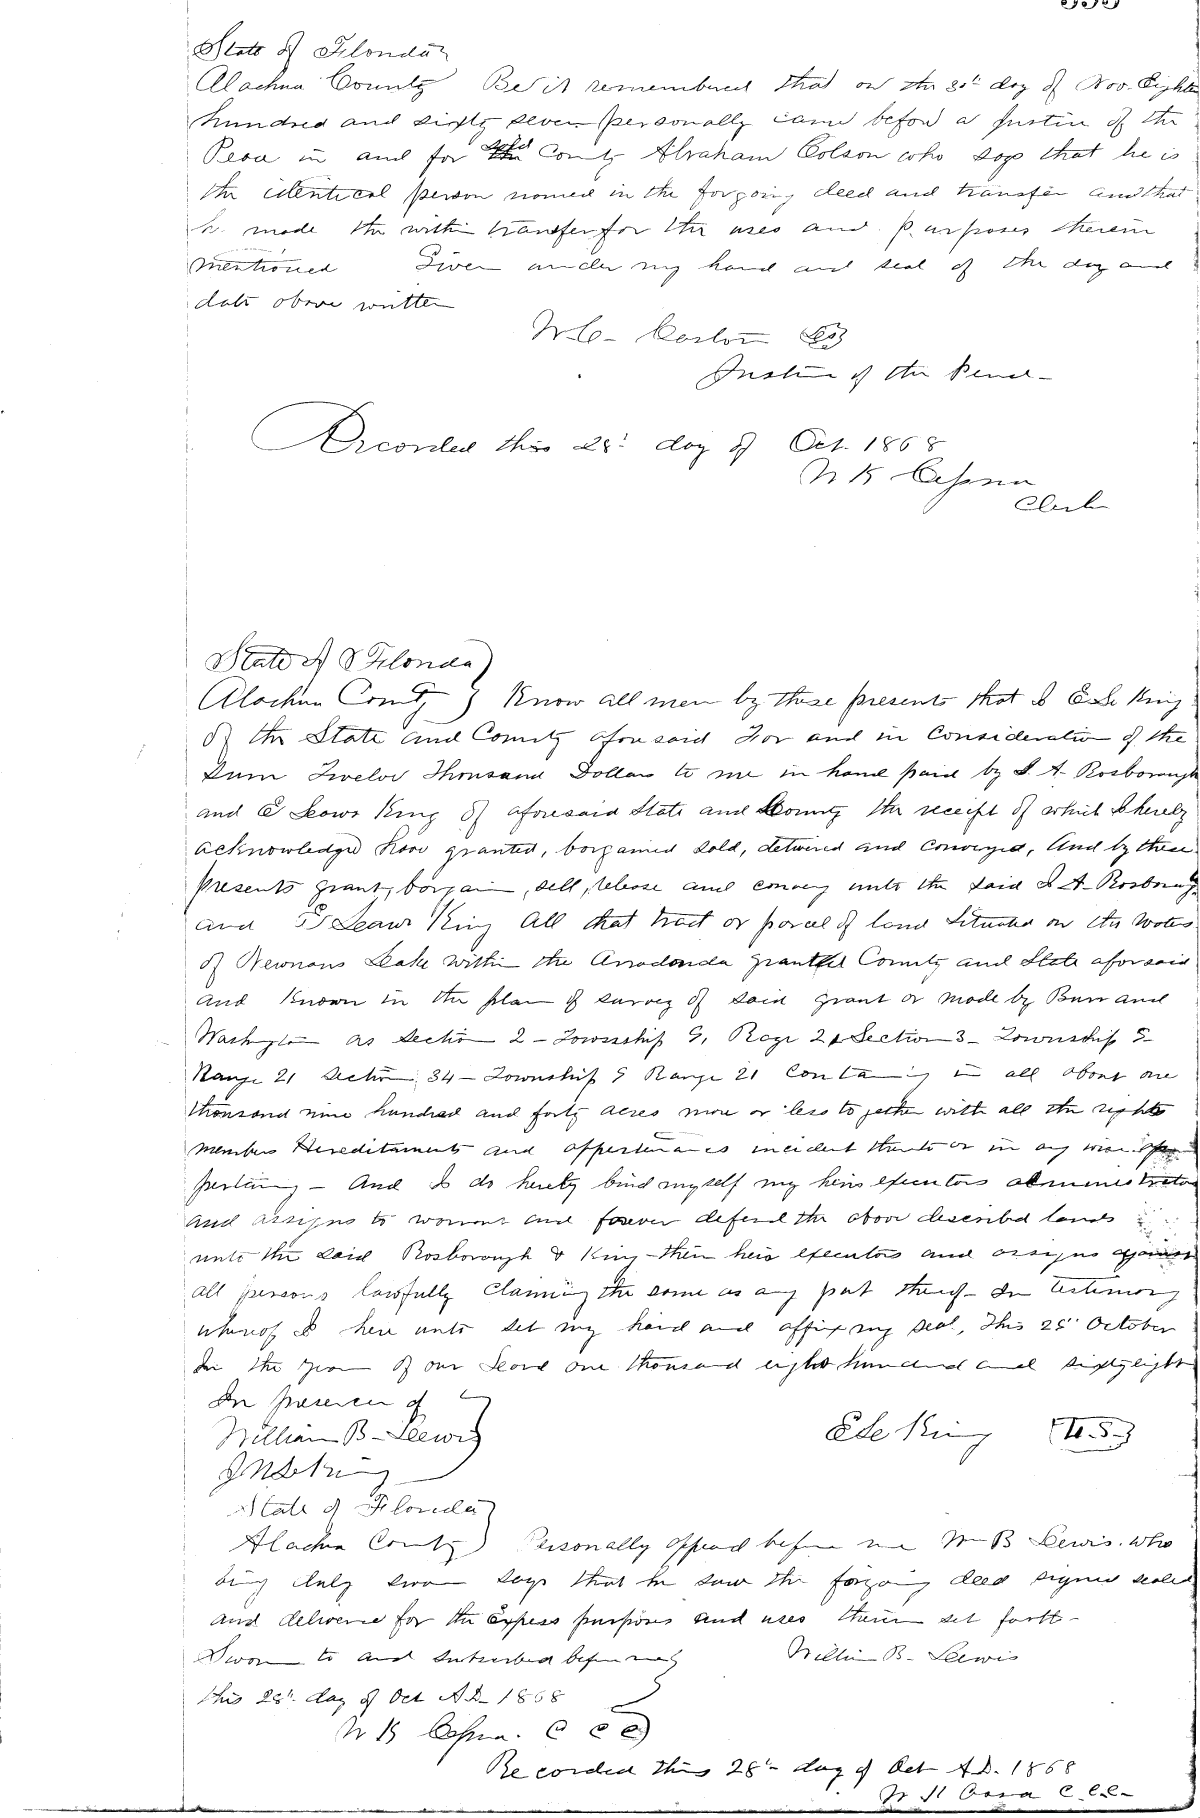 State of Florida
Alachua County Be it remembered that on the 30th day of Nov. Eighteen
hundred and sixty seven personally came before a Justice of the
Peace in and for said County Abraham Colson who says that he is
the identical person named in the forgoing deed and transfer and that
he made the within transfer for the uses and purposes therein
mentioned Given under my hand and seal of the day and
date above written
Justice of the Peace
Recorded this 28th day of Oct. 1868
Cessna
Clerk
State of Florida
Alachua County Know all men by these presents that I King
of the State and County aforesaid For and in Consideration of the
Sum Twelve Thousand Dollars to me in hand paid by J. A. Rosborough
and E Leaws King of aforesaid State and County the receipt of which I hereby
acknowledged have granted, bargained sold, delivered and conveyed, And by these
presents grant, bargain, sell, release and convey unto the said J. A. Rosborough
and E Leaws King All that tract or parcel of land Situated on the Waters
of Newnans Lake within the Arradonda grant County and State aforsaid
and Known in the plan of survey of said grant as made by Burr and
Washington as section 2 - Township 9, Rage 21 Section 3 - Township 9
Range 21 Section 34 - Township 9 Range 21 Containing in all about one
thousand nine hundred and forty acres more or less together with all the rights
members Hereditaments and appertenances incident thereto or in any wise ap
pertaining - And I do hereby bind myself my heirs executors administrators
and assigns to warrant and forever defend the above described lands
unto the said Rosborough & King their heirs executors and assigns against
all persons lawfully Claiming the same as any part thereof - In testimony
whereof I here unto set my hand and affix my seal, This 28th October
In the year of our Lord one thousand eight hundred and sixty eight
In presence of
William B - Leewis
King [L.S.]
State of Florida
Alachua County Personally appeard before me Wm B Lewis. who
being duly sworn says that he saw the forgoing deed signed sealed
and delivered for the Express purposes and uses therein set forth -
Sworn to and subscribed before me William B. Leewis
this 28th day of Oct A.D. 1868
Cessna. C C C
Recorded this 28th day of Oct A.D. 1868
C.C.C.